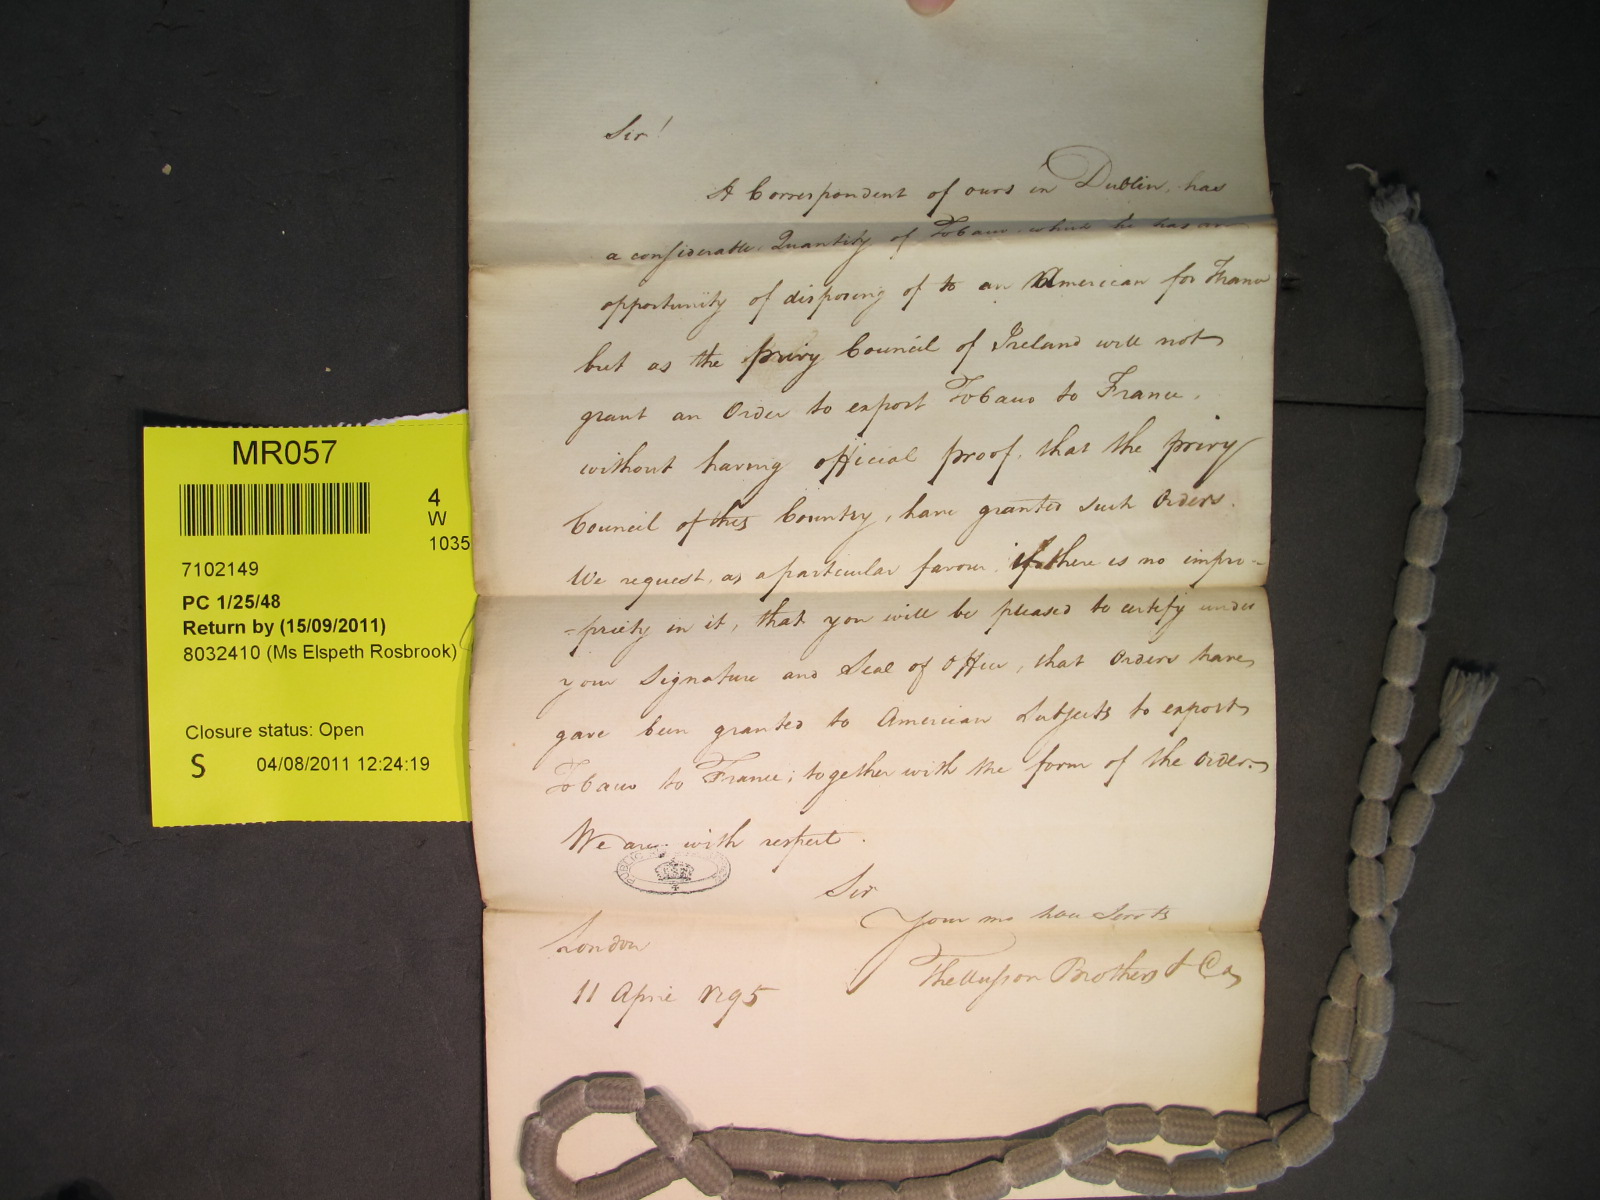 Sir!
A Correspondent of ours in Dublin, has
a considerable Quantity of Tobacco which he has an
opportunity of disposing of to an American for France
but as the privy Council of Ireland will not
grant an Order to export Tobacco to France,
without having official proof, that the privy
Council of this Country, have granted such Orders.
We request, as a particular favour, if there is no impro-
-priety in it, that you will be pleased to certify under
your Signature and Seal of Office, that Orders have
gave been granted to American Subjects to export
Tobacco to France; together with the form of the Order.
We are with respect.
Sir
Your mo hble Servts
Thellusson Brothers & Co
London
11 April 1795
PUBLIC
MR057
4
W
1035
7102149
PC 1/25/48
Return by (15/09/2011)
8032410 (Ms Elspeth Rosbrook)
Closure status: Open
S 04/08/2011 12:24:19